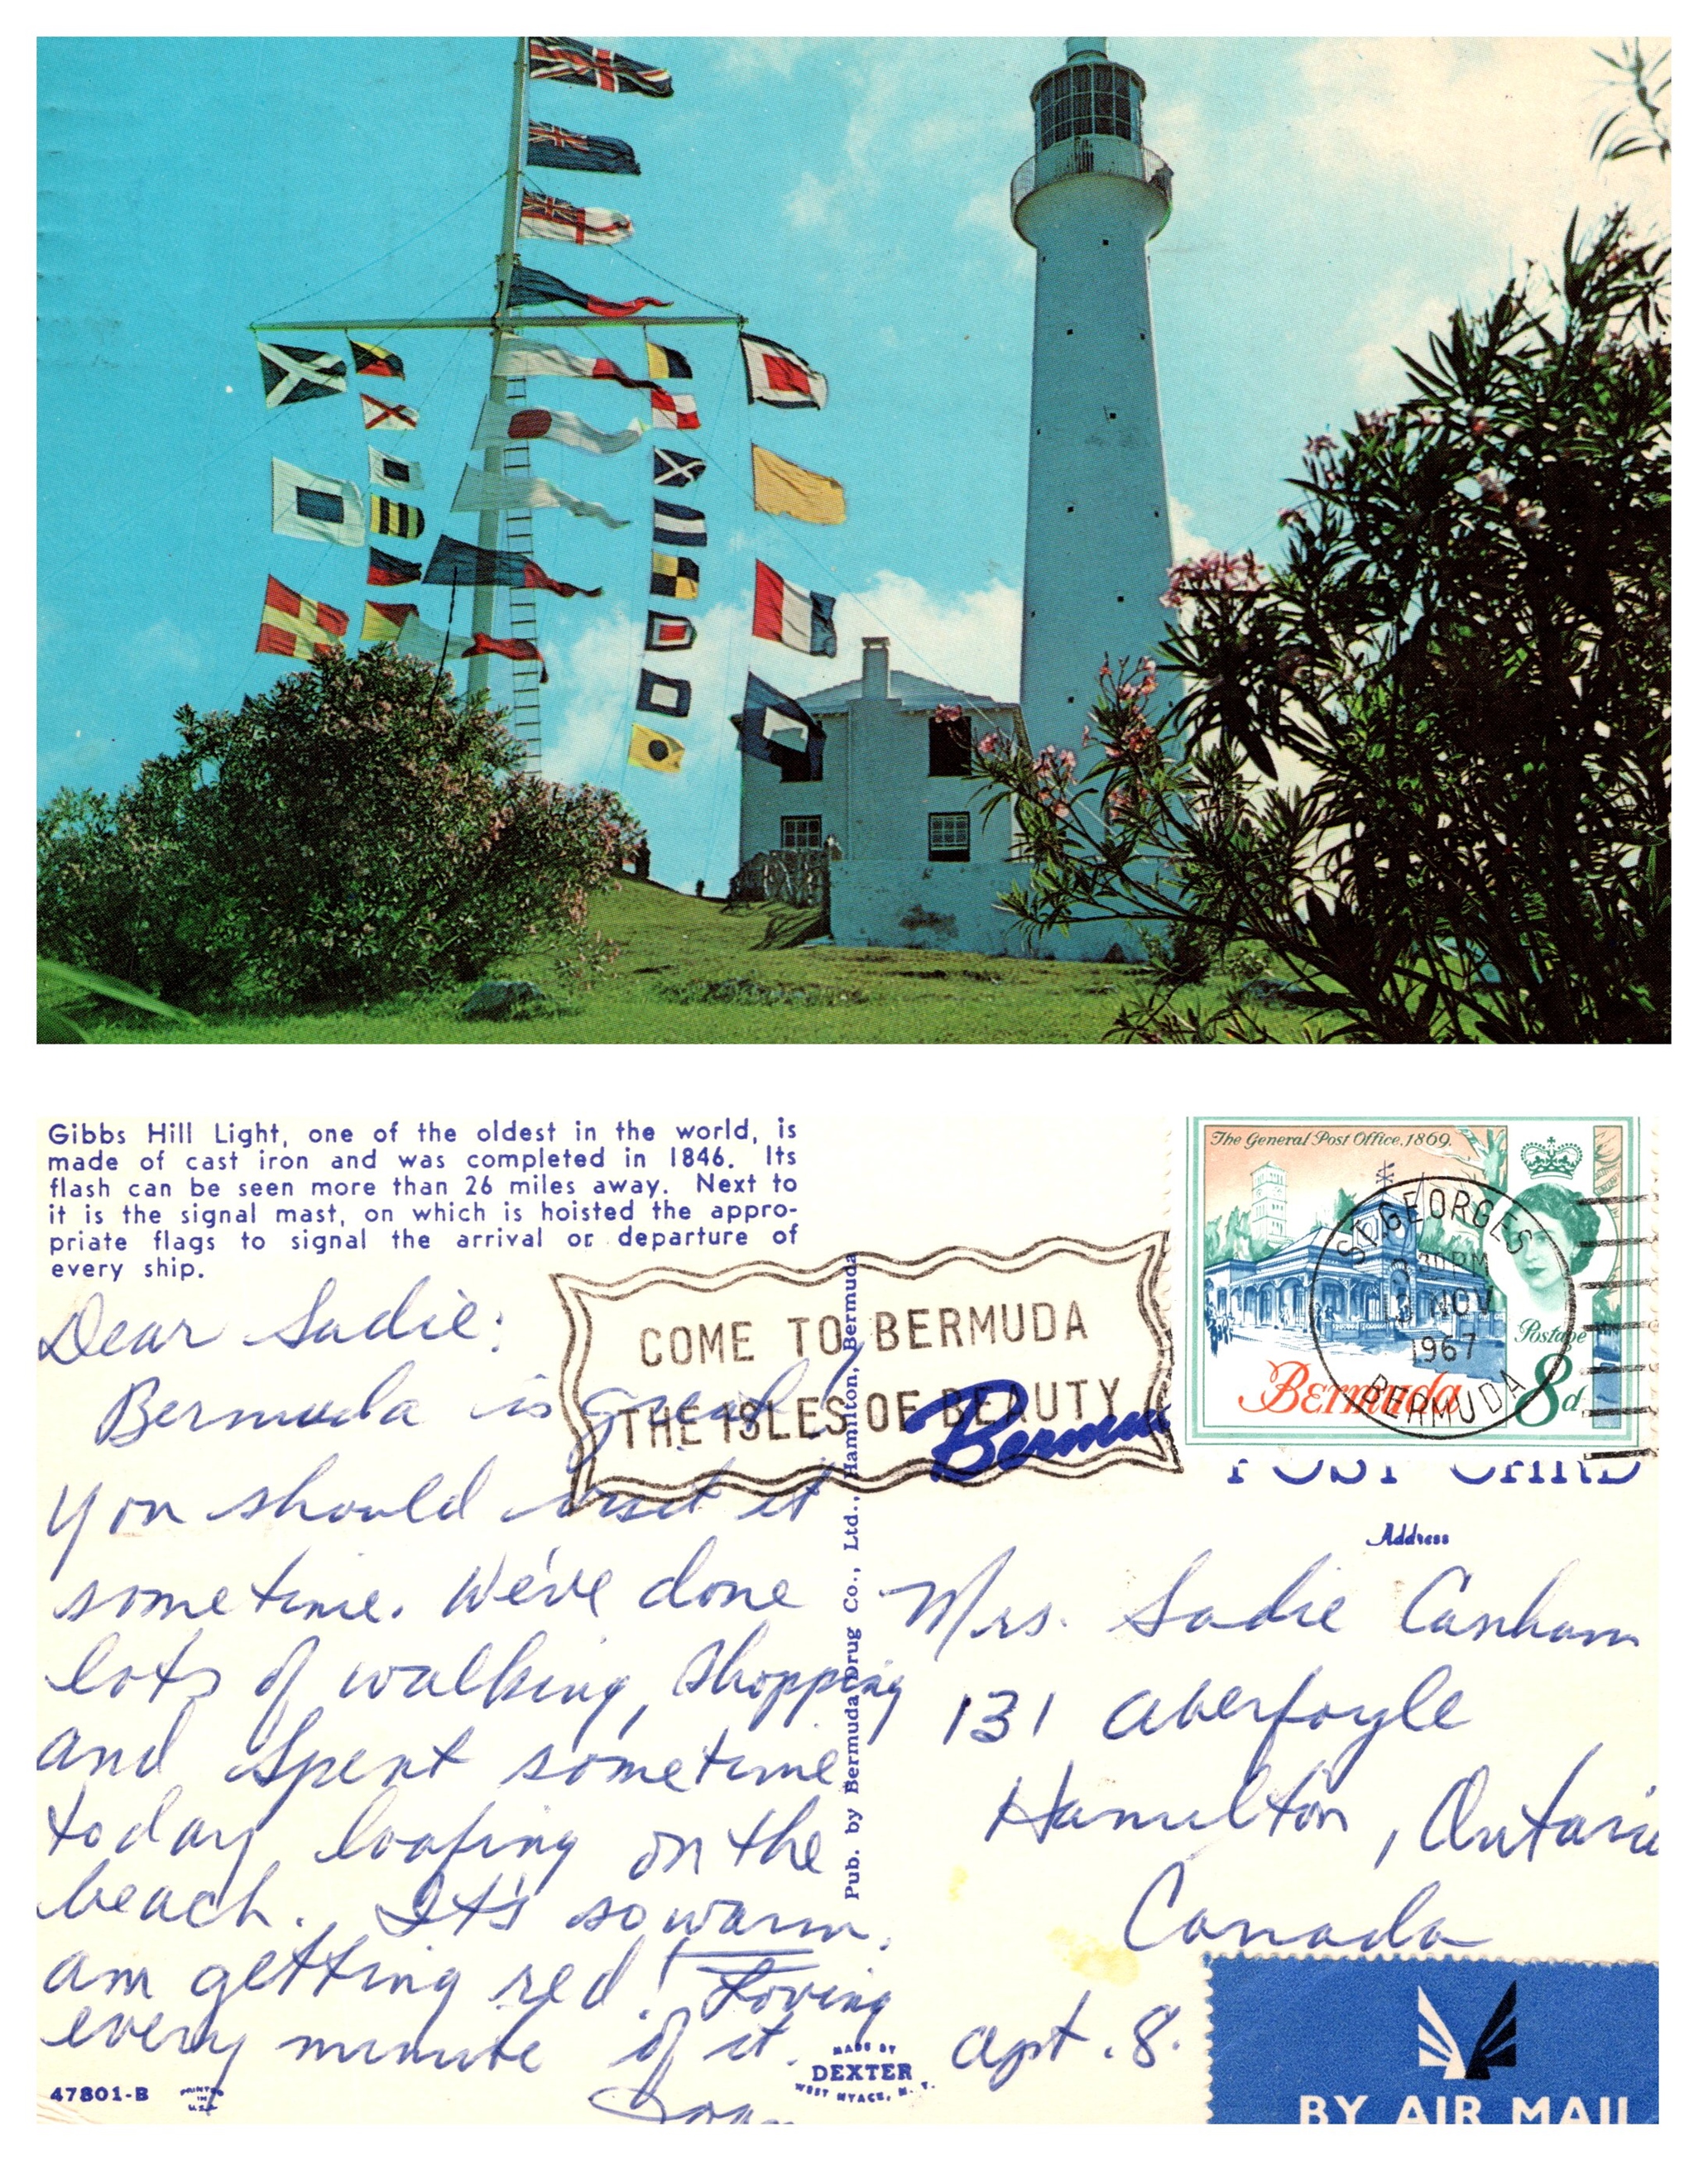 Gibbs Hill Light, one of the oldest in the world, is
made of cast iron and was completed in 1846. Its
flash can be seen more than 26 miles away. Next to
it is the signal mast, on which is hoisted the appro-
priate flags to signal the arrival or departure of
every ship.
Dear Sadie:
Bermuda is great!
You should visit it
sometime. We've done
lots of walking, shopping
and spent sometime
today loafing on the
beach. It's so warm,
am getting red! Loving
every minute of it.
Joan
47801-B
PRINTED
IN
U.S.A.
MADE BY
DEXTER
WEST NYACK, N. Y.
Pub. by Bermuda Drug Co., Ltd., Hamilton, Bermuda
COME TO BERMUDA
THE ISLES OF BEAUTY
Bermu
The General Post Office, 1869.
Postage
Bermuda 8d
ST. GEORGES
3 30 PM
3 NOV
1967
BERMUDA
POST CARD
Address
Mrs. Sadie Canham
131 Aberfoyle
Hamilton, Ontario
Canada
apt. 8.
BY AIR MAIL